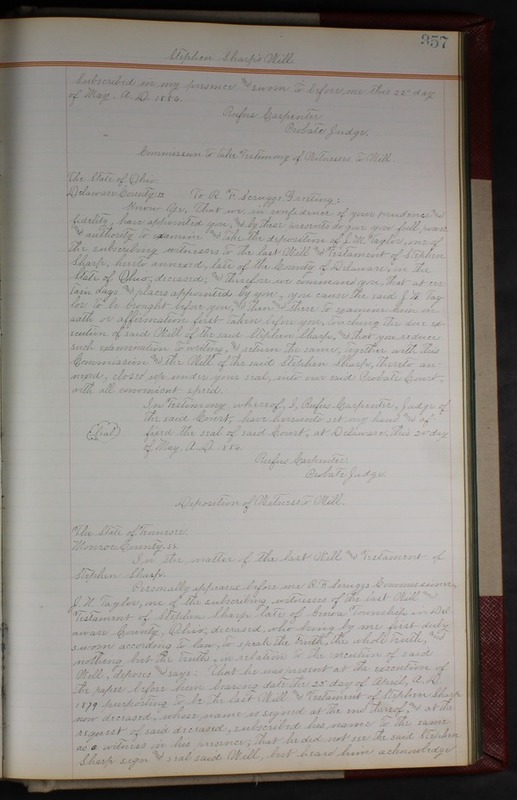 357
Stephen Sharp's Will
Subscribed in my presence and sworn to before me this 22d day
of May A.D. 1880.
Rufus Carpenter
Probate Judge.
Commission to Take Testimony of Witnesses to Will.
The State of Ohio.
Delaware County ss To R. F. Scruggs Greeting:
Know Ye, That we, in confidence of your prudence and
fidelity, have appointed you, and by these presents do give you full power
and authority to examine and take the deposition of J. N. Taylor, one of
the subscribing witnesses to the last Will and Testament of Stephen
Sharp, hereto annexed, late of the County of Delaware, in the
State of Ohio, deceased; and therefore we command you, that at cer-
tain days and places appointed by you, you cause the said J. N. Tay-
lor to be brought before you, and then and there to examine him on
oath or affirmation first taken before you, touching the due ex-
ecution of said Will of the said Stephen Sharp, and that you reduce
such examination to writing, and return the same, together with this
Commission and the Will of the said Stephen Sharp, thereto an-
nexed, closed up under your seal, unto our said Probate Court,
with all convenient speed.
In Testimony whereof, I, Rufus Carpenter, Judge of
the said Court, have hereunto set my hand and af-
Seal
fixed the seal of said Court, at Delaware, this 22 day
of May A.D. 1880.
Rufus Carpenter
Probate Judge.
Deposition of Witness to Will.
The State of Tennessee.
Monroe County ss.
In the matter of the last Will and Testament of
Stephen Sharp.
Personally appeared before me R. F. Scruggs Commissioner,
J. N. Taylor, one of the subscribing witnesses of the last Will and
Testament of Stephen Sharp late of Genoa Township in Del-
aware County, Ohio, deceased, who being by me first duly
sworn according to law, to speak the truth, the whole truth, and
nothing but the truth, in relation to the execution of said
Will, deposes and says: That he was present at the execution of
the paper before him bearing date the 25 day of April, A.D.
1879 purporting to be the last Will and Testament of Stephen Sharp
now deceased, whose name is signed at the end thereof, and at the
request of said deceased, subscribed his name to the same
as a witness in his presence, that he did not see the said Stephen
Sharp sign and seal said Will, but heard him acknowledge